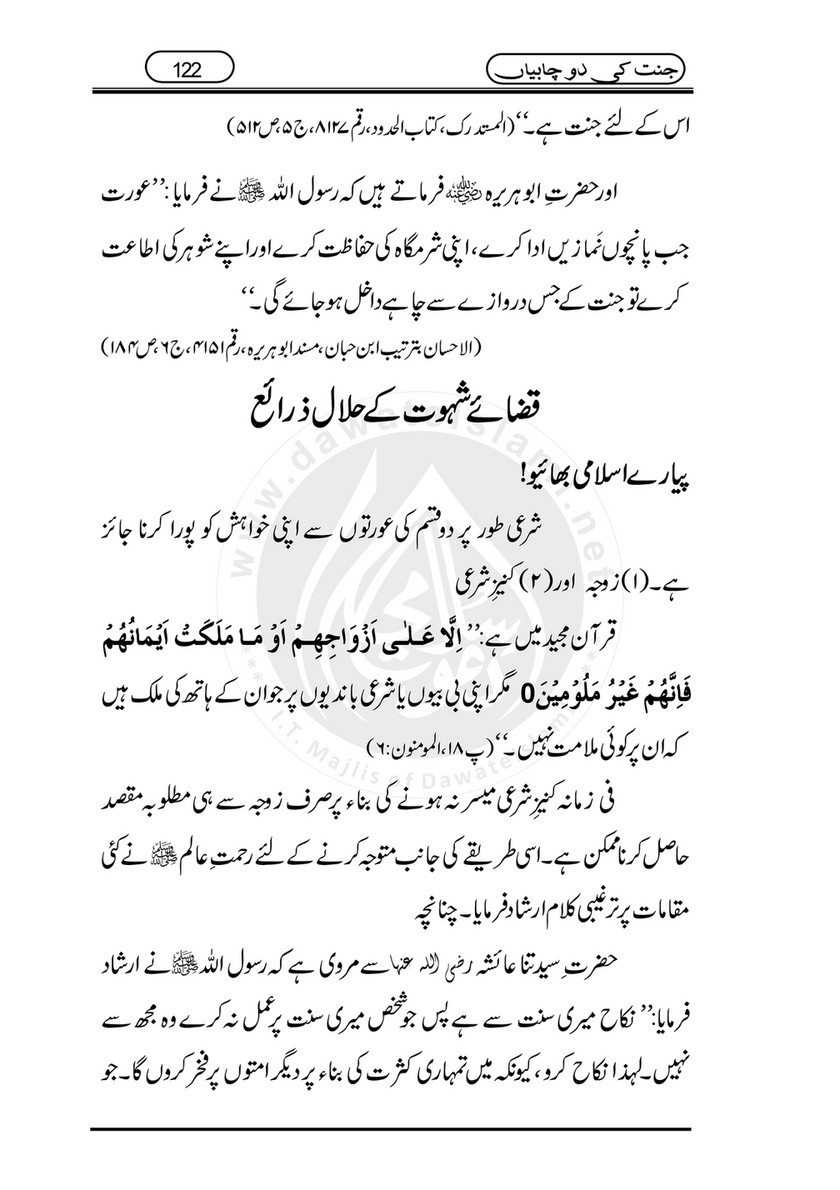 جنت کی دو چابیاں 122
اس کے لئے جنت ہے۔‘‘(المستدرک،کتاب الحدود،رقم ۸۱۲۷،ج۵،ص۵۱۲)
اورحضرتِ ابوہریرہ رضی اللہ عنہ فرماتے ہیں کہ رسول اللہ ﷺ نے فرمایا :’’عورت
جب پانچوں نَمازیں ادا کرے،اپنی شرمگاہ کی حفاظت کرے اوراپنے شوہر کی اطاعت
کرے تو جنت کے جس دروازے سے چاہے داخل ہوجائے گی۔‘‘
(الاحسان بترتیب ابن حبان،مسند ابوہریرہ،رقم۴۱۵۱،ج۶،ص۱۸۴)
قضائے شہوت کے حلال ذرائع
پیارے اسلامی بھائیو!
شرعی طور پر دو قسم کی عورتوں سے اپنی خواہش کو پورا کرنا جائز
ہے۔(۱)زوجہ اور(۲)کنیزِ شرعی
قرآن مجید میں ہے:’’ اِلَّا عَـلٰـی اَزْوَاجِهِـمْ اَوْ مَـا مَلَکَتْ اَیْمَانُهُمْ
فَاِنَّهُمْ غَیْرُ مَلُوْمِیْنَ0 مگر اپنی بی بیوں یا شرعی باندیوں پر جو ان کے ہاتھ کی ملک ہیں
کہ ان پر کوئی ملامت نہیں۔‘‘(پ۱۸،المومنون:۶)
فی زمانہ کنیزِ شرعی میسر نہ ہونے کی بناء پر صرف زوجہ سے ہی مطلوبہ مقصد
حاصل کرنا ممکن ہے۔اسی طریقے کی جانب متوجہ کرنے کے لئے رحمتِ عالم ﷺ نے کئی
مقامات پر ترغیبی کلام ارشاد فرمایا۔ چنانچہ
حضرتِ سیدتنا عائشہ رضی اللہ عنہا سے مروی ہے کہ رسول اللہ ﷺ نے ارشاد
فرمایا:’’ نکاح میری سنت سے ہے پس جو شخص میری سنت پر عمل نہ کرے وہ مجھ سے
نہیں۔لہذا نکاح کرو ، کیونکہ میں تمہاری کثرت کی بناء پر دیگر امتوں پر فخر کروں گا۔جو
www.dawateislami.net
I.T. Majlis of DawateIslami